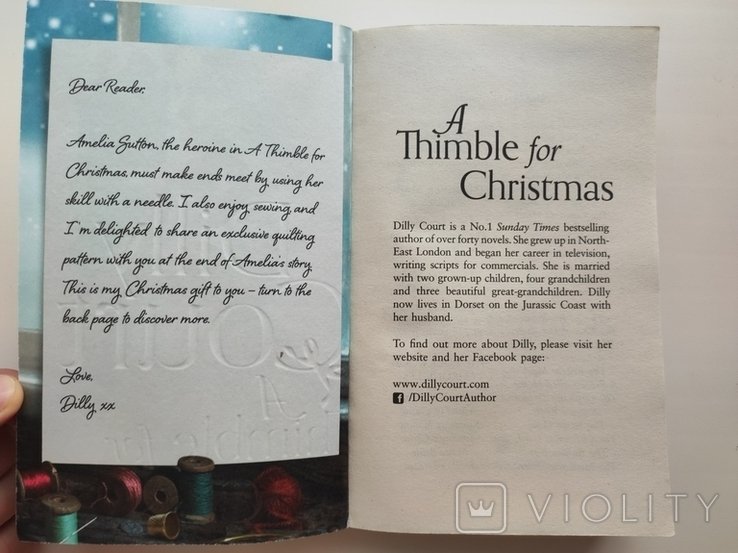 Dear Reader,
Amelia Sutton, the heroine in A Thimble for
Christmas, must make ends meet by using her
skill with a needle. I also enjoy sewing, and
I'm delighted to share an exclusive quilting
pattern with you at the end of Amelia's story.
This is my Christmas gift to you – turn to the
back page to discover more.
Love,
Dilly xx
A
Thimble for
Christmas
Dilly Court is a No.1 Sunday Times bestselling
author of over forty novels. She grew up in North-
East London and began her career in television,
writing scripts for commercials. She is married
with two grown-up children, four grandchildren
and three beautiful great-grandchildren. Dilly
now lives in Dorset on the Jurassic Coast with
her husband.
To find out more about Dilly, please visit her
website and her Facebook page:
www.dillycourt.com
f /DillyCourtAuthor
VIOLITY